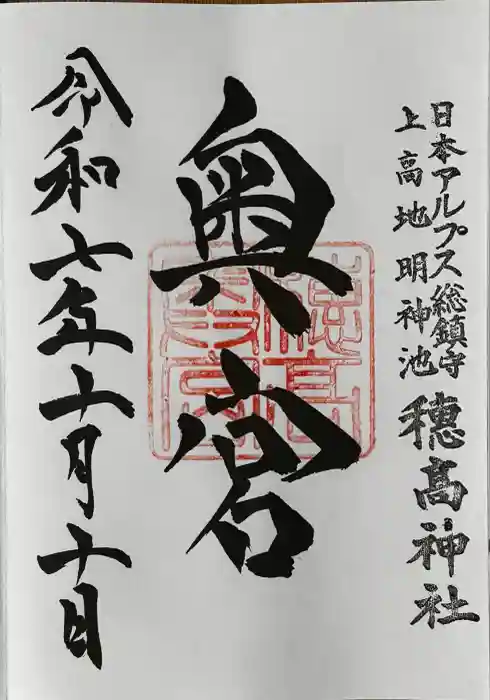 日本アルプス総鎮守
上高地明神池
穂髙神社
奥宮
穂髙
奥宮
令和七年十月十日